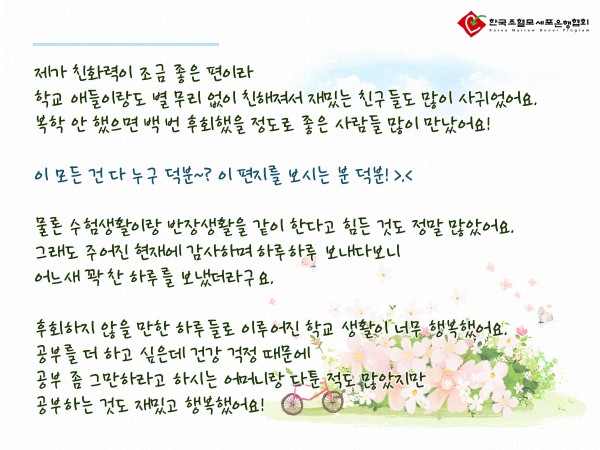 한국조혈모세포은행협회
Korea Marrow Donor Program
제가 친화력이 조금 좋은 편이라
학교 애들이랑도 별 무리 없이 친해져서 재밌는 친구들도 많이 사귀었어요.
복학 안 했으면 백 번 후회했을 정도로 좋은 사람들 많이 만났어요!
이 모든 건 다 누구 덕분~? 이 편지를 보시는 분 덕분! >.<
물론 수험생활이랑 반장생활을 같이 한다고 힘든 것도 정말 많았어요.
그래도 주어진 현재에 감사하며 하루하루 보내다보니
어느새 꽉 찬 하루를 보냈더라구요.
후회하지 않을 만한 하루들로 이루어진 학교 생활이 너무 행복했어요.
공부를 더 하고 싶은데 건강 걱정 때문에
공부 좀 그만하라고 하시는 어머니랑 다툰 적도 많았지만
공부하는 것도 재밌고 행복했어요!